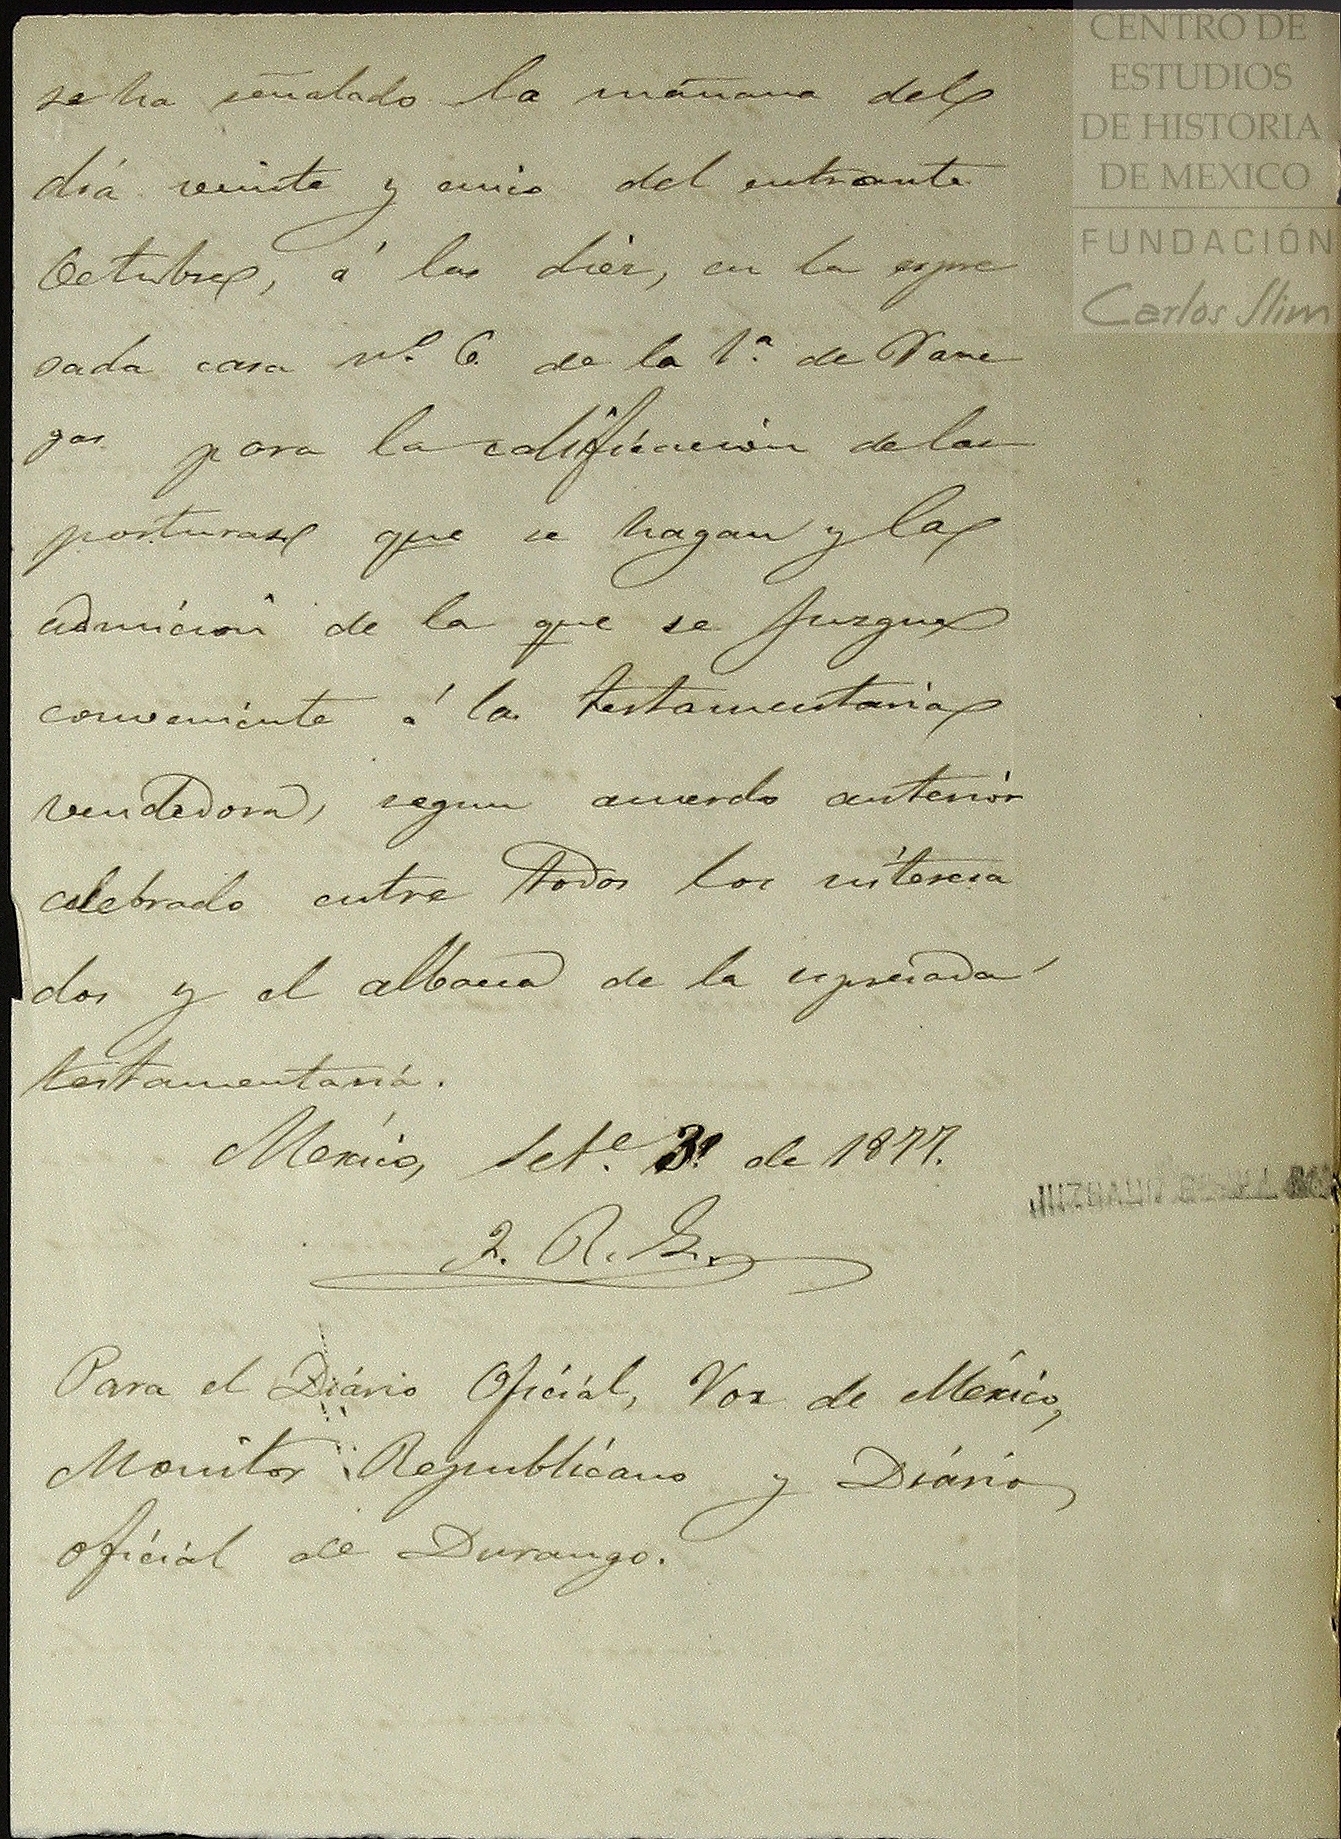 CENTRO DE
ESTUDIOS
DE HISTORIA
DE MEXICO
FUNDACIÓN
Carlos Slim
se ha señalado la mañana del
diá veinte y cinco del entrante
Octubre, á las diez, en la expre
sada casa nº. 6. de la 1ª. de Vane
gas para la calificacion de las
posturas que se hagan y la
admicion de la que se juzgue
conveniente á la testamentaria
vendedora, segun acuerdo anterior
celebrado entre todos los interesa
dos y el albacea de la expresada
testamentariá.
México, Setᵉ. de 1877.
Para el Diário Oficiál, Voz de México,
Monitor Republicano y Diário
oficiál de Durango.